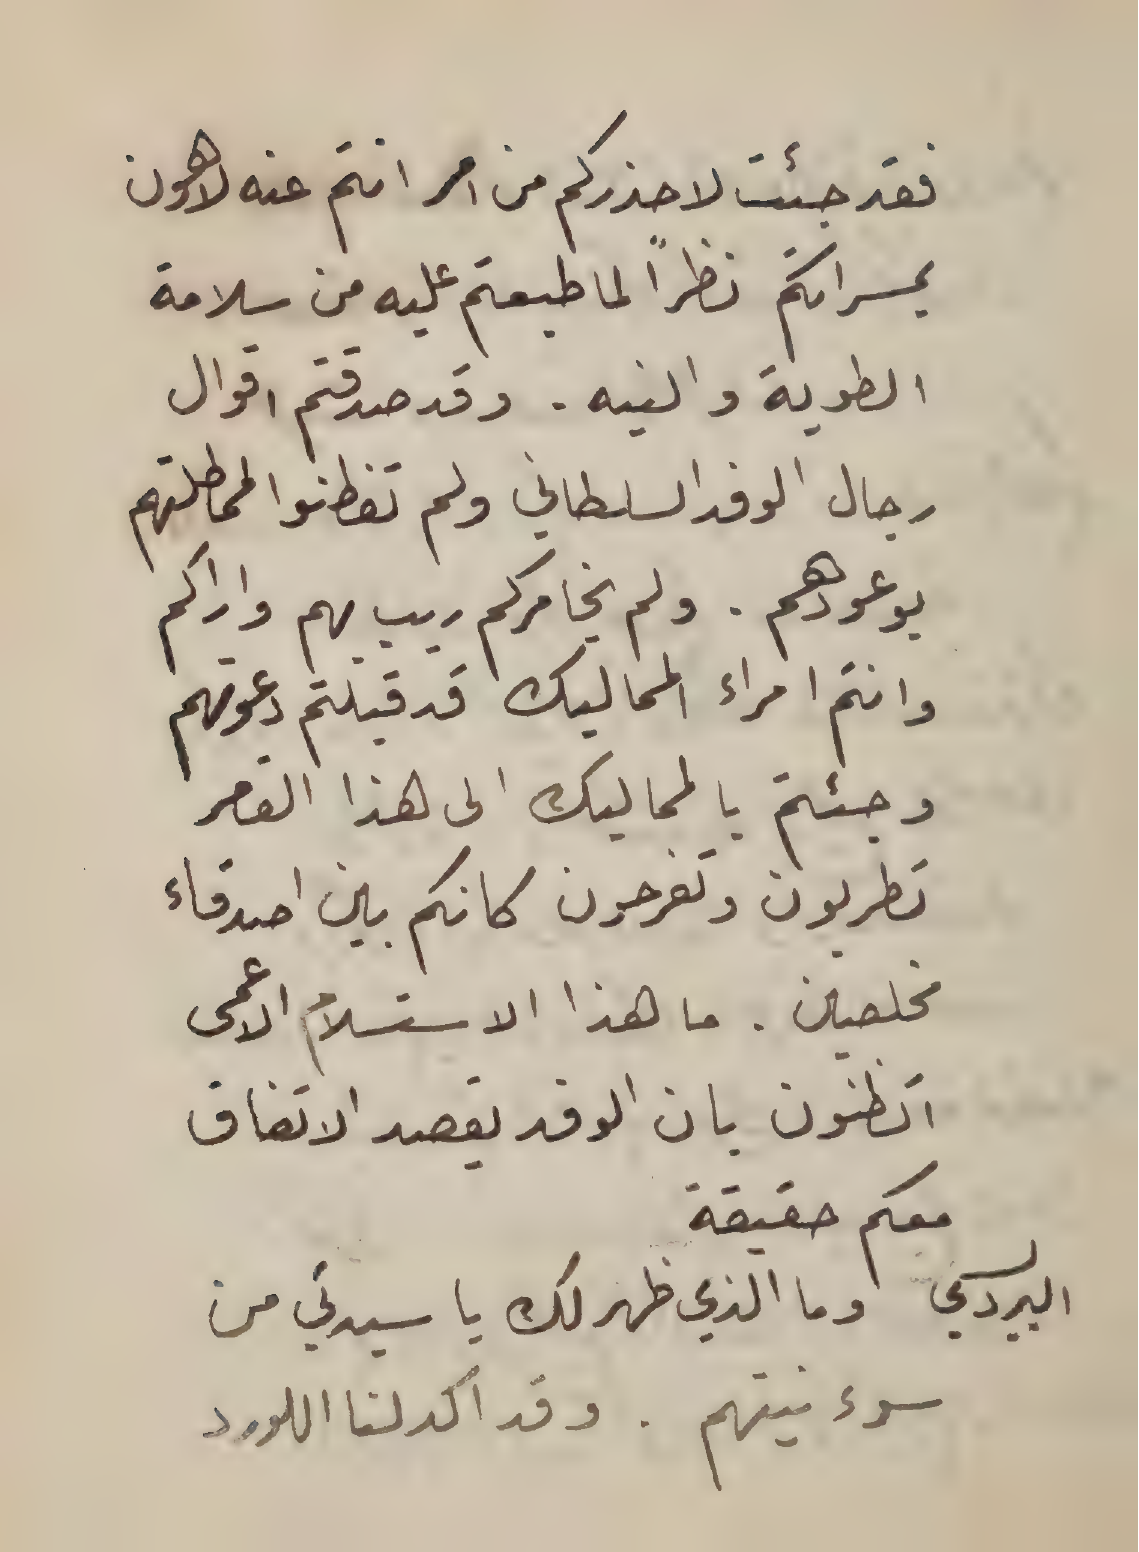 فقد جئت لاحذركم من امر انتم عنه لاهون
بمسراتكم نظراً لما طبعتم عليه من سلامة
الطوية والنيه . وقد صدقتم اقوال
رجال الوفد السلطاني ولم تفطنوا لمماطلتهم
بوعودهم . ولم يخامركم ريب بهم واراكم
وانتم امراء المماليك قد قبلتم دعوتهم
وجئتم بالمماليك الى هذا القصر
تطربون وتفرحون كانكم بين اصدقاء
مخلصين . ما هذا الاستسلام الاعمى
اتظنون بان الوفد يقصد الاتفاق
معكم حقيقة
البرديسي وما الذي ظهر لك يا سيدتي من
سوء نيتهم . وقد أكد لنا اللورد